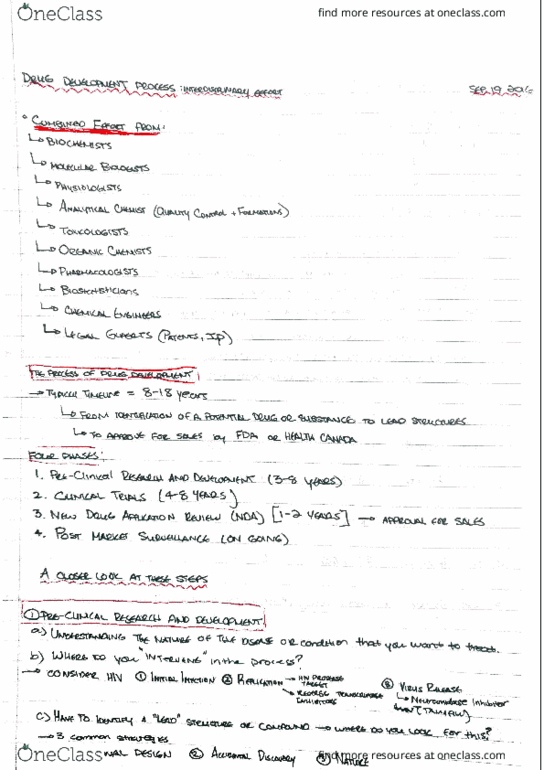 OneClass
find more resources at oneclass.com
DRUG DEVELOPMENT PROCESS: INTERDISCIPLINARY EFFORT
SEP. 19. 2016
COMBINED EFFORT FROM:
↳ BIOCHEMISTS
↳ MOLECULAR BIOLOGISTS
↳ PHYSIOLOGISTS
↳ ANALYTICAL CHEMIST (QUALITY CONTROL + FORMATIONS)
↳ TOXICOLOGISTS
↳ ORGANIC CHEMISTS
↳ PHARMACOLOGISTS
↳ BIOSTATISTICIANS
↳ CHEMICAL ENGINEERS
↳ LEGAL EXPERTS (PATENTS, IP)
THE PROCESS OF DRUG DEVELOPMENT
→ TYPICAL TIMELINE = 8-18 years
↳ FROM IDENTIFICATION OF A POTENTIAL DRUG OR SUBSTANCE TO LEAD STRUCTURES
↳ TO APPROVE FOR SALES by FDA OR HEALTH CANADA
FOUR PHASES:
1. PRE-CLINICAL RESEARCH AND DEVELOPMENT (3-8 YEARS)
2. CLINICAL TRIALS [4-8 YEARS]
3. NEW DRUG APPLICATION REVIEW (NDA) [1-2 YEARS] → APPROVAL FOR SALES
4. POST MARKET SURVEILLANCE (ON GOING)
A CLOSER LOOK AT THESE STEPS
① PRE-CLINICAL RESEARCH AND DEVELOPMENT
a) UNDERSTANDING THE NATURE OF THE DISEASE OR condition that you want to treat.
b) WHERE DO you "INTERVENE" in the process?
→ CONSIDER HIV ① INITIAL INFECTION ② REPLICATION → HIV PROTEASE TARGET
→ REVERSE TRANSCRIPTASE INHIBITORS
③ VIRUS RELEASE
↳ Neuraminidase Inhibitor
(TAMIFLU)
c) HAVE TO IDENTIFY A "LEAD" STRUCTURE OR COMPOUND → WHERE DO YOU LOOK FOR THIS?
→ 3 common strategies
DESIGN ② ACCIDENTAL DISCOVERY ③ NATURE
OneClass
find more resources at oneclass.com